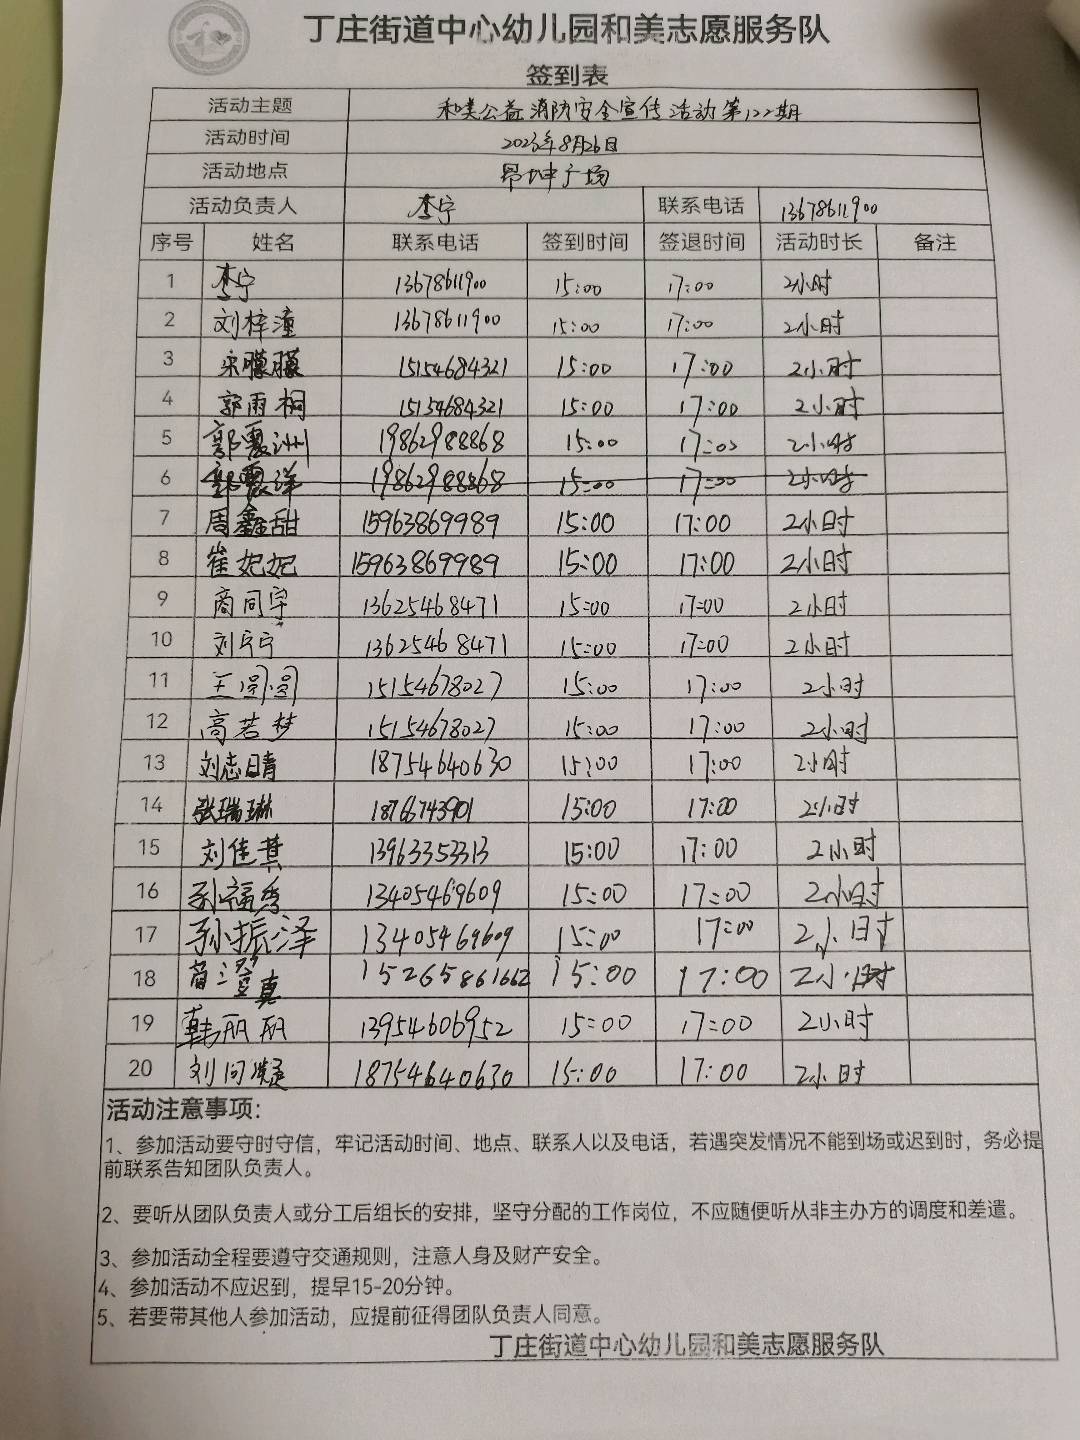 丁庄街道中心幼儿园和美志愿服务队
签到表
活动主题 和美公益消防安全宣传活动第122期
活动时间 2023年8月26日
活动地点 昂坤广场
活动负责人 李宁 联系电话 13678611900
序号 姓名 联系电话 签到时间 签退时间 活动时长 备注
1 李宁 13678611900 15:00 17:00 2小时
2 刘梓潼 13678611900 15:00 17:00 2小时
3 宋朦朦 15154684321 15:00 17:00 2小时
4 郭雨桐 15154684321 15:00 17:00 2小时
5 郭震洲 19862988868 15:00 17:00 2小时
6 19862988868 15:00 17:00 2小时
7 周鑫甜 15963869989 15:00 17:00 2小时
8 崔妃妃 15963869989 15:00 17:00 2小时
9 商同宇 13625468471 15:00 17:00 2小时
10 刘宁宁 13625468471 15:00 17:00 2小时
11 王圆圆 15154678027 15:00 17:00 2小时
12 高若梦 15154678027 15:00 17:00 2小时
13 刘志晴 18754640630 15:00 17:00 2小时
14 张瑞琳 18766743901 15:00 17:00 2小时
15 刘佳其 13963353313 15:00 17:00 2小时
16 孙福秀 13405469609 15:00 17:00 2小时
17 孙振泽 13405469609 15:00 17:00 2小时
18 15265861662 15:00 17:00 2小时
19 韩丽丽 13954606952 15:00 17:00 2小时
20 刘问凝 18754640630 15:00 17:00 2小时
活动注意事项：
1、参加活动要守时守信，牢记活动时间、地点、联系人以及电话，若遇突发情况不能到场或迟到时，务必提
前联系告知团队负责人。
2、要听从团队负责人或分工后组长的安排，坚守分配的工作岗位，不应随便听从非主办方的调度和差遣。
3、参加活动全程要遵守交通规则，注意人身及财产安全。
4、参加活动不应迟到，提早15-20分钟。
5、若要带其他人参加活动，应提前征得团队负责人同意。
丁庄街道中心幼儿园和美志愿服务队